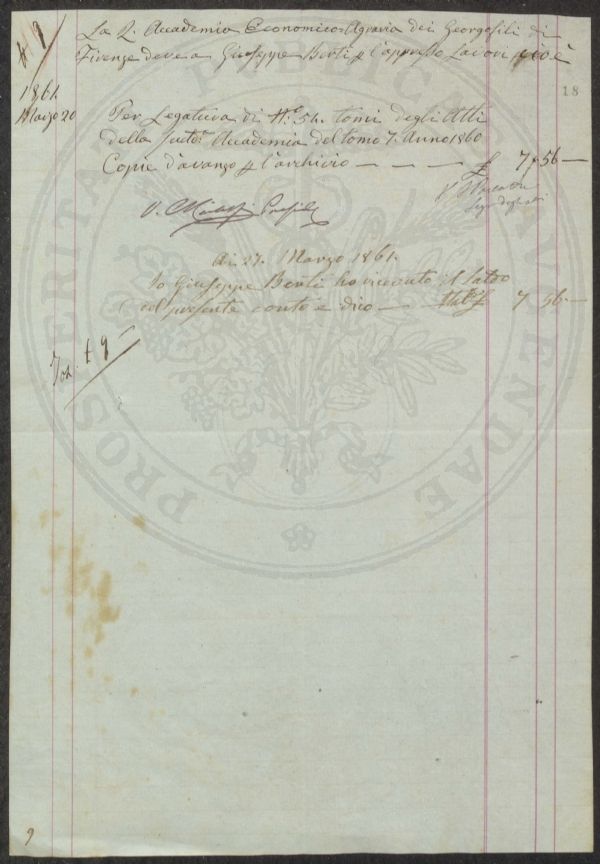 La R. Accademia Economico Agraria dei Georgofili di
Firenze deve a Giuseppe Berti p l'appresso Lavori cioè
18
1861.
Marzo 20
Per Legatura di N.° 54. tomi degli Atti
della Sudd.a Accademia del tomo 7. Anno 1860
Copie d'avanzo p l'archivio — — — £ 7 „ 56 —
V.
Ai 27. Marzo 1861.
Io Giuseppe Berti ho ricevuto il saldo
del presente conto e dico — £ 7 56.—
9
PROSPERITATI PUBLICAE AUGENDAE